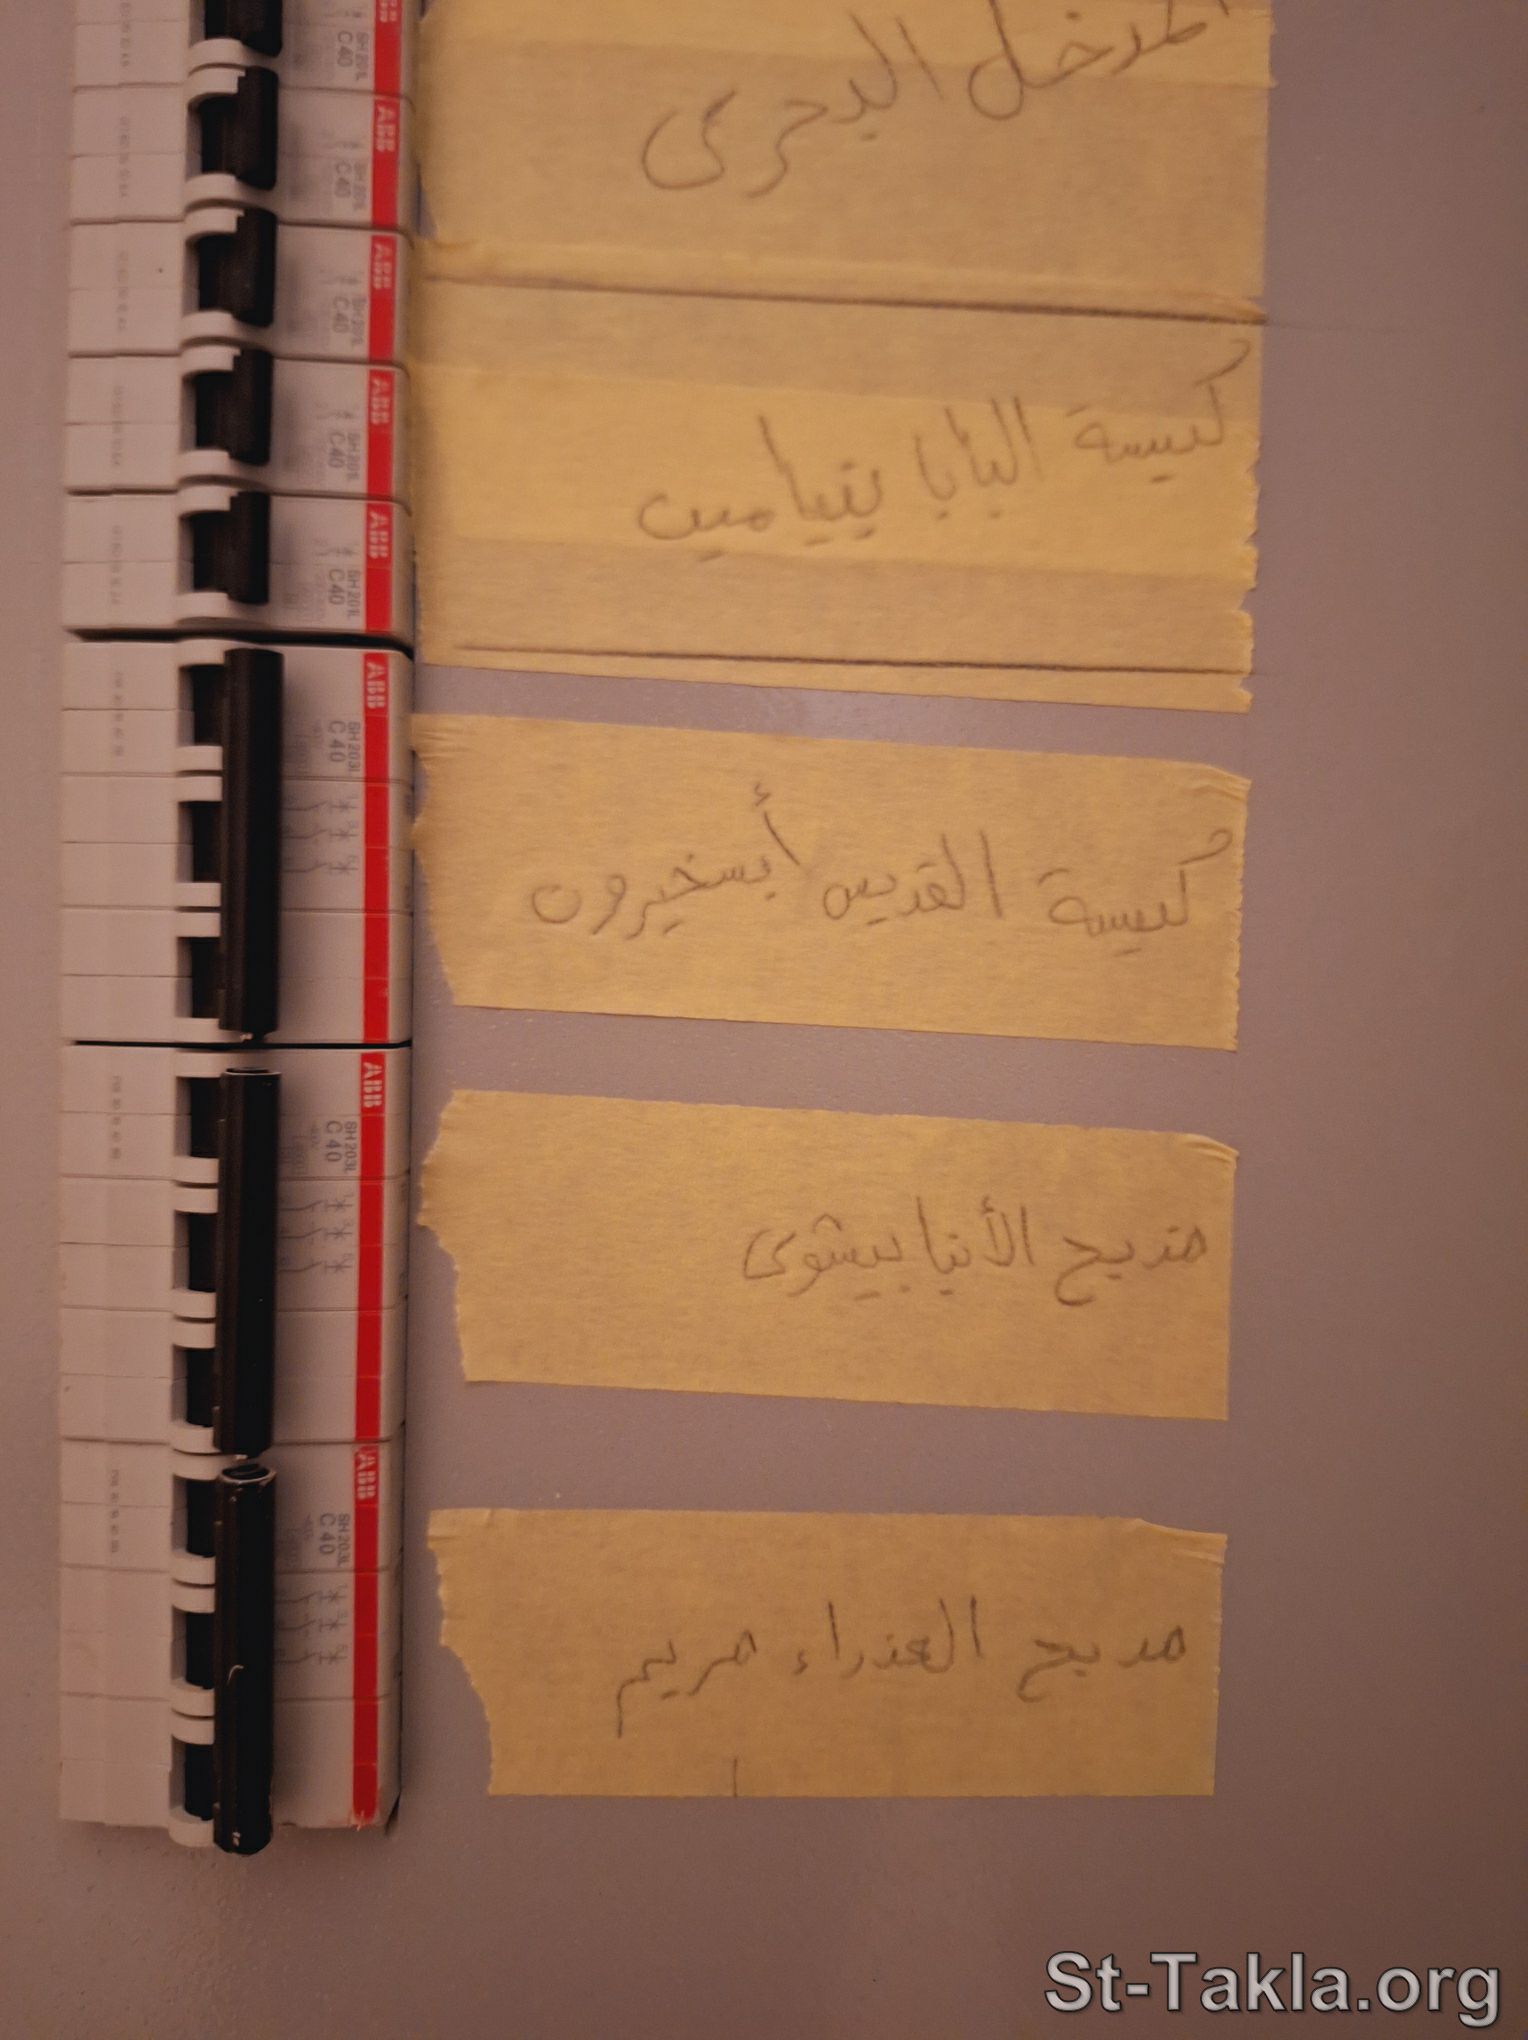 المدخل البحرى
كنيسة البابا بنيامين
كنيسة القديس أبسخيرون
مذبح الأنبا بيشوى
مدبح العذراء مريم
ABB
SH201L
C40
ABB
SH201L
C40
ABB
SH201L
C40
ABB
SH201L
C40
ABB
SH201L
C40
ABB
SH203L
C40
ABB
SH203L
C40
ABB
SH203L
C40
St-Takla.org